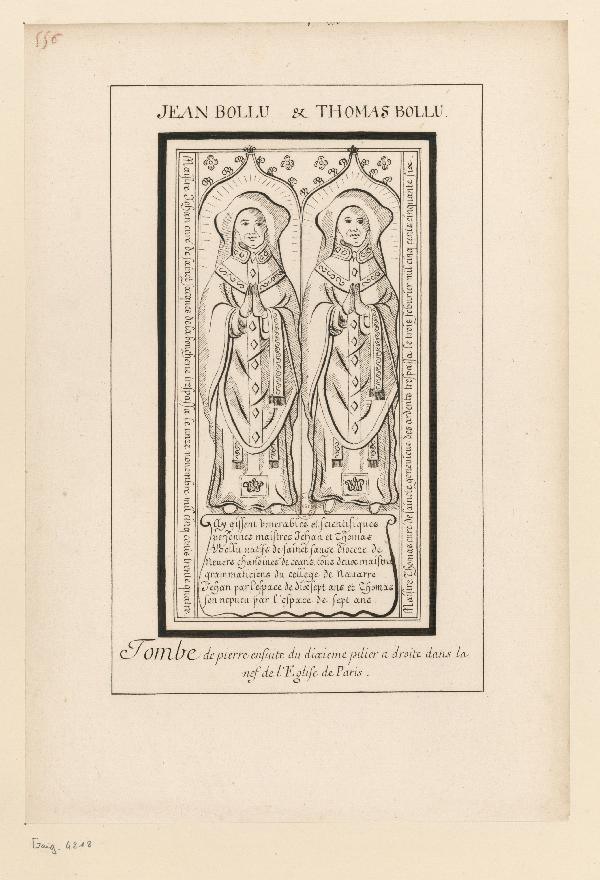 556
JEAN BOLLU & THOMAS BOLLU.
Maistre Jehan cure de sainct Jacques de la boucherie trespassa le unze novembre mil cinq cents trente quatre.
Maistre Thomas cure de saincte genevieve des ardents trespassa le trois febvrier mil cinq cents cinquante six.
Cy gissent venerables et scientifiques
personnes maistres Jehan et Thomas
Bollu natifs de sainct sauge diocese de
Nevers chanoines de ceans, tous deux maistres
grammaticiens du college de Navarre
Jehan par l'espace de dix sept ans et Thomas
son nepveu par l'espace de sept ans
Tombe de pierre ensuite du dixieme pilier a droite dans la
nef de l'Eglise de Paris.
Gaig. 4218